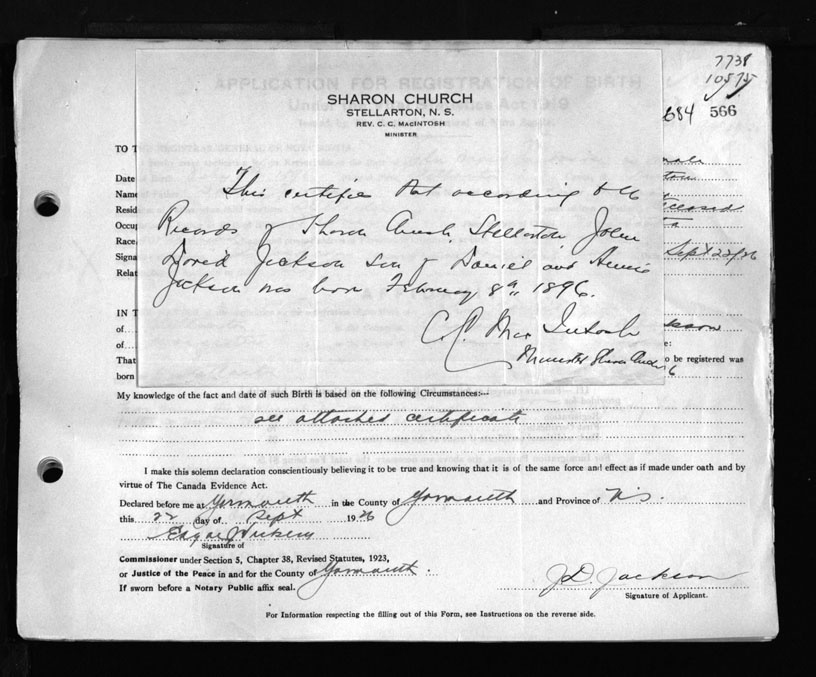 7738
10575
684 566
APPLICATION FOR REGISTRATION OF BIRTH
SHARON CHURCH
STELLARTON, N. S.
REV. C. C. MACINTOSH
MINISTER
TO T
Date
Name
Resid
Occup
Race
Signa
Relat
Sept 22/26
This certifies that according to the
Records of Sharon Church, Stellarton, John
David Jackson son of Daniel and Annie
Jackson was born February 8th, 1896.
C. C. MacIntosh
Minister Sharon Church
IN T
of
of
That o be registered was
born 6
My knowledge of the fact and date of such Birth is based on the following Circumstances:—
see attached certificate
I make this solemn declaration conscientiously believing it to be true and knowing that it is of the same force and effect as if made under oath and by
virtue of The Canada Evidence Act.
Declared before me at Yarmouth in the County of Yarmouth and Province of N.S.
this 22 day of Sept 1926
Signature of
Commissioner under Section 5, Chapter 38, Revised Statutes, 1923,
or Justice of the Peace in and for the County of Yarmouth.
If sworn before a Notary Public affix seal.
J.D. Jackson
Signature of Applicant.
For Information respecting the filling out of this Form, see Instructions on the reverse side.